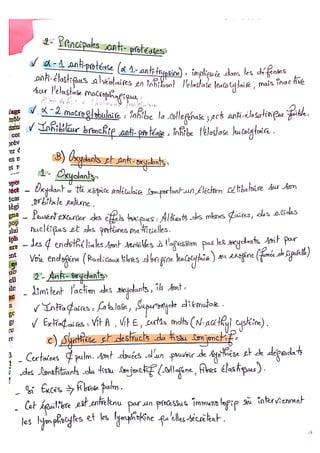 2- Principales anti-protéases
✓ α-1 antiprotéase (α1-antitrypsine), impliquée dans les défenses
anti-élastiques alvéolaires en inhibant l'élastase leucocytaire, mais inactive
sur l'élastase macrophagique.
✓ α-2 macroglobuline, inhibe la collagénase ; acts anti-élastique faible.
✓ Inhibiteur bronchiq anti-protéase, inhibe l'élastase leucocytaire.
B) Oxydants et anti-oxydants
1- Oxydants
- Oxydant = tte espèce moléculaire comportant un électron célibataire sur son
orbitale externe.
- Peuvent exercer des effets toxiques: Altérat° des mbnes ȼaires, des acides
nucléiques et des protéines matricielles.
- Les ȼ endothéliales sont sensibles à l'agression par les oxydants soit par
voie endogène (Radicaux libres d'origine leucocytaire) ou exogène (fumée de cigarette)
2- Anti-oxydants
- Limitent l'action des oxydants, ils sont:
✓ Intraȼaires: Catalase, Superoxyde dismutase.
✓ Extraȼaires: Vit A, Vit E, certns mdts (N-acéthyl cystéine).
C) Synthèse et destruct° du tissu conjonctif
- Certaines ȼ pulm. sont douées d'un pouvoir de synthèse et de dégradat°
des constituants du tissu conjonctif (collagène, fibres élastiques).
- Si Excès ⇒ fibrose pulm.
- Cet équilibre est entretenu par un processus immunologiq où interviennent
les lymphocytes et les lymphokine qu'elles sécrètent.